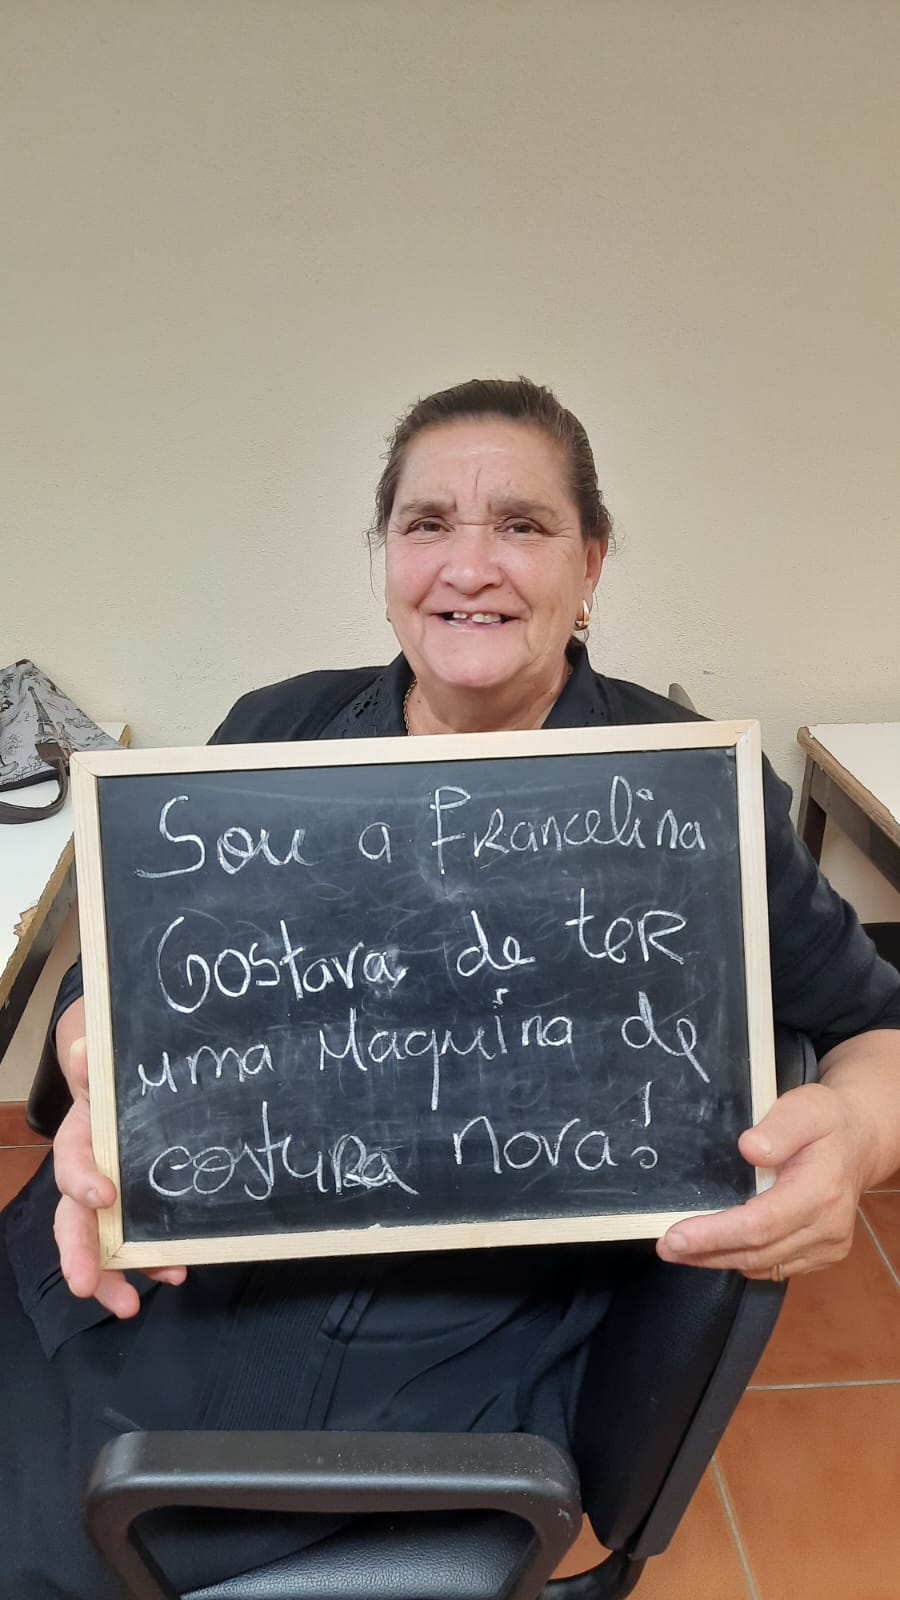 Sou a Francelina
Gostava de ter
uma Maquina de
costura nova!